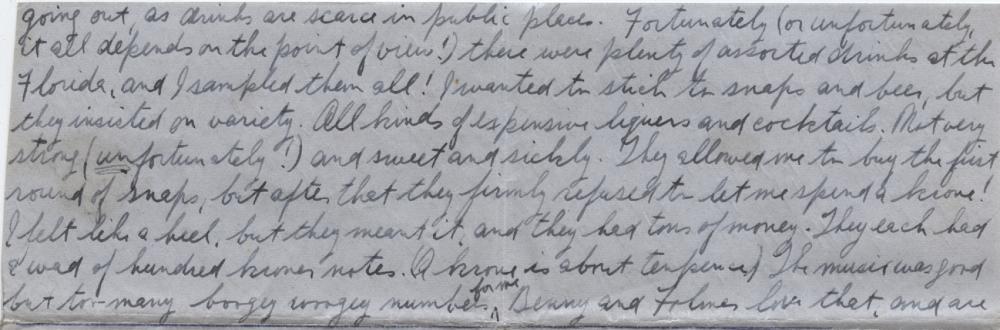 going out, as drinks are scarce in public places. Fortunately (or unfortunately,
it all depends on the point of view!) there were plenty of assorted drinks at the
Florida, and I sampled them all! I wanted to stick to snaps and beer, but
they insisted on variety. All kinds of expensive liquers and cocktails. Not very
strong (unfortunately!) and sweet and sickly. They allowed me to buy the first
round of snaps, but after that they firmly refused to let me spend a krone!
I felt like a heel, but they meant it, and they had tons of money. They each had
a wad of hundred kroner notes. (A krone is about tenpence) The music was good
but too many boogey woogey numbers for me. Benny and Holmes love that, and are